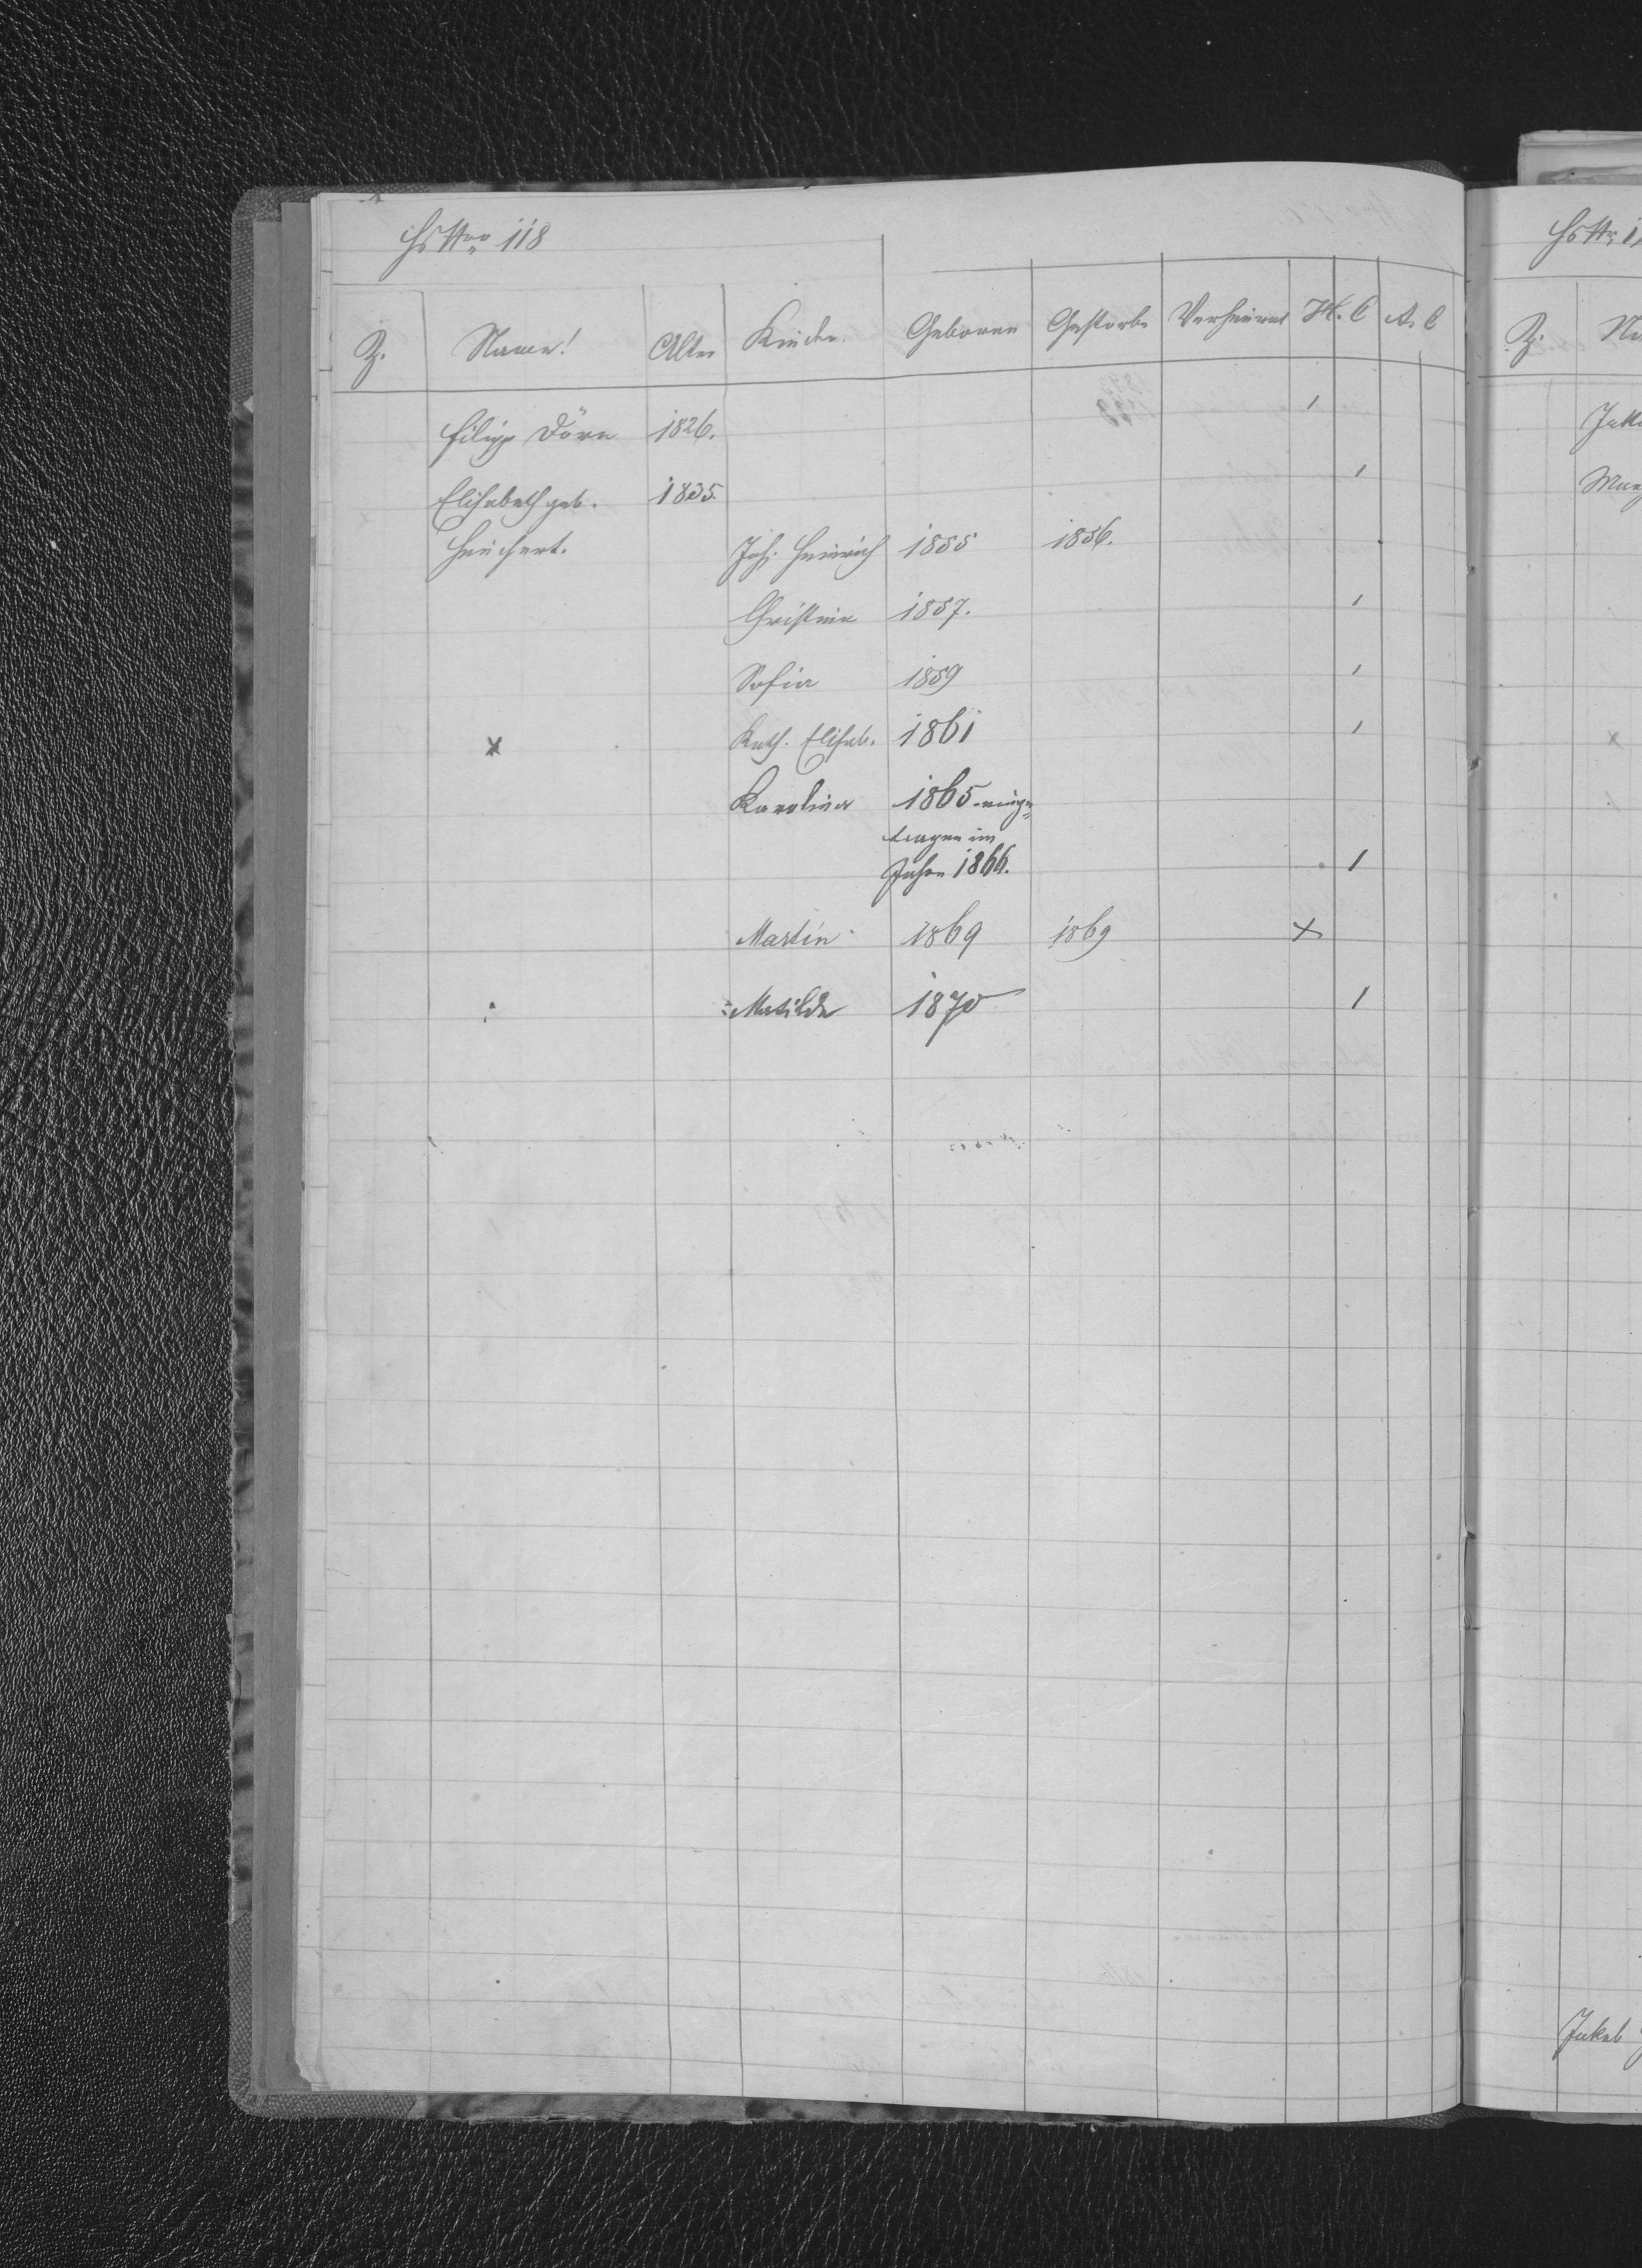 Hs Nro 118
Z. Name! Alter Kinder. Geboren Gestorbe Verheirat H. C A. C
Filipp Dörn 1826. 1
Elisabeth geb. 1835. 1
Heuchert. Joh. Heinrich 1855 1856.
Christina 1857. 1
Sofia 1859 1
x Kath. Elisab. 1861 1
Karolina 1865 einge=
tragen im
Jahre 1866. 1
Martin 1869 1869 x
Matilde 1870 1
Hs Nr
Z.
Jakob